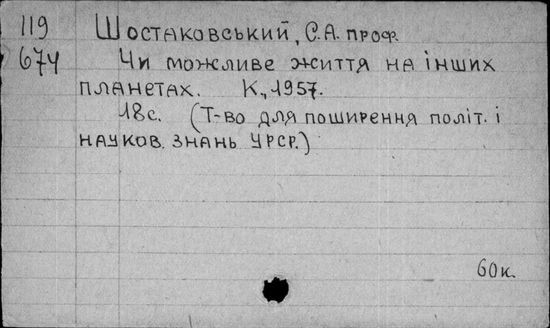 119 Шостаковський, С.А. проф.
674 Чи можливе життя на інших
планетах. К., 1957.
18с. (Т-во для поширення політ. і
науков. знань УРСР.)
60к.